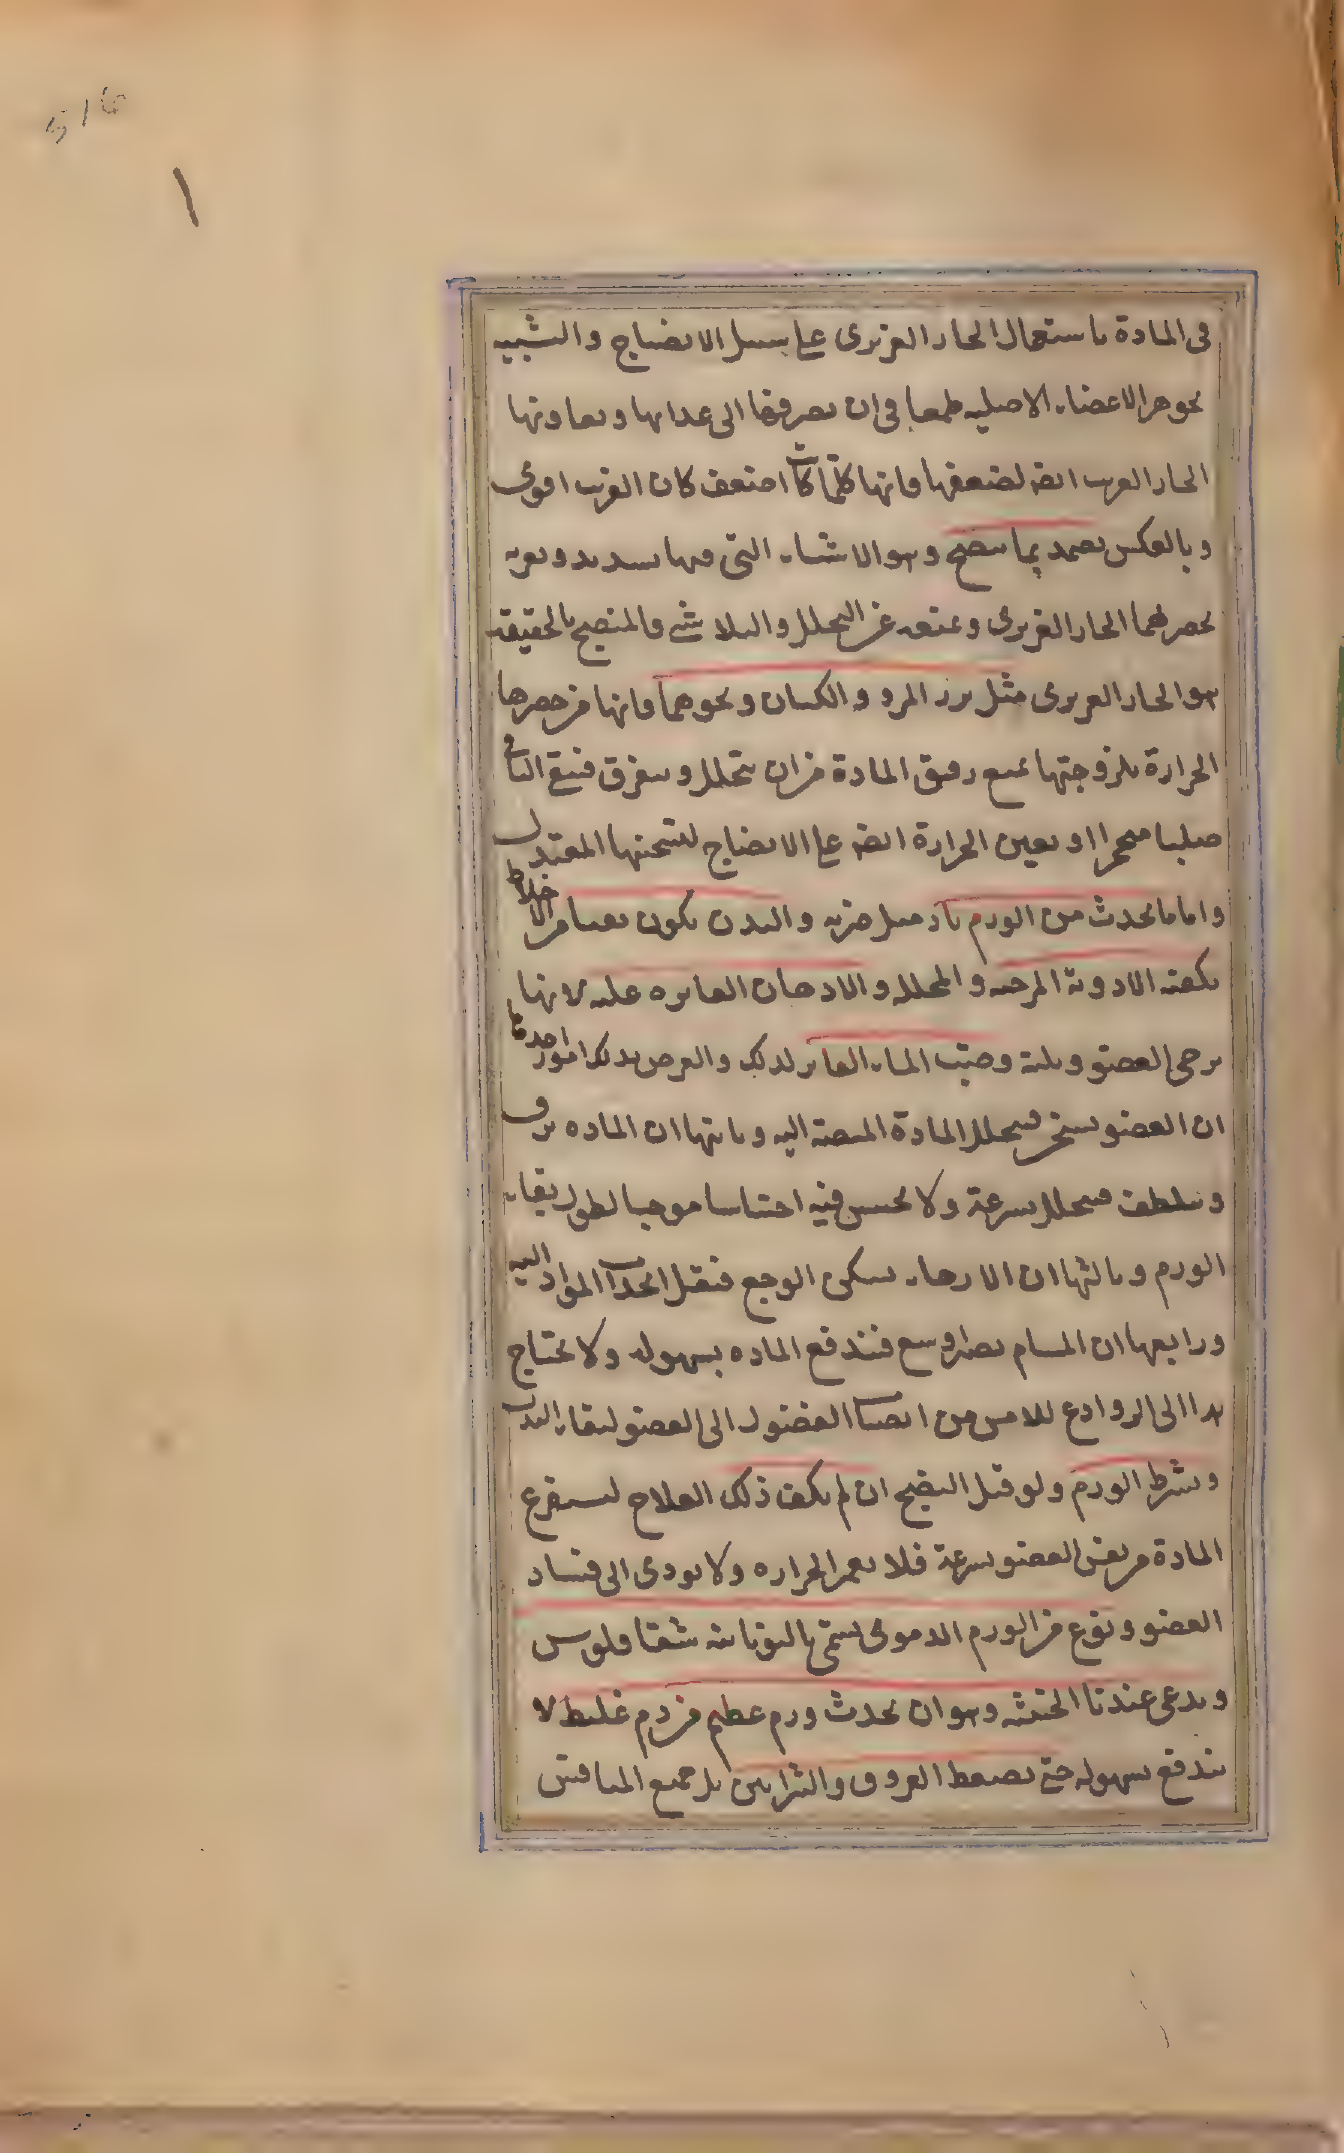 فى المادة باستعمال الحار الغريزى على سبيل الانضاج والتشبيه
بجوهر الاعضاء الاصلية طمعا فى ان يصرفها الى غذائها ويعاونها
الحار الغريب ايضه لضعفها فانها كلما كانت اضعف كان الغريب اقوى
وبالعكس يضمد بما ينضج وهو الاشياء التى فيها تسديد وتغرية
يحصر بهما الحار الغريزى ويمنعه عن التحلل والتلاشى فالمنضج بالحقيقة
هو الحار الغريزى مثل بزر المرو والكتان ونحوهما فانها من حصرها
الحرارة بلزوجتها يمنع رقيق المادة من ان يتحلل ويتفرق فيبقى الباقى
صلبا متحجرا او يعين الحرارة ايضه على الانضاج لتسخينها المعتدل
واما ما يحدث من الورم بادٍ مثل ضربه والبدن يكون نقيا من الاخلاط
يكفيه الادوية المرخيه والمحلله والادهان الفاتره عليه لانها
ترخى العضو ويلينه وصب الماء الفاتر لذلك والغرض بذلك امور احدها
ان العضو يسخن فيتحلل المادة المنصبة اليه وثانيها ان الماده يرق
ويلطف فيتحلل بسرعة ولا يحبس فيه احتباسا موجبا لطول بقاء
الورم وثالثها ان الارخاء يسكن الوجع فيقل انجذاب المواد اليه
ورابعها ان المسام يصير اوسع فيندفع الماده بسهوله ولا يحتاج
هذا الى الروادع للامن من انصباب الفضول الى العضو لنقاء البدن
ويشرط الورم ولو قبل النضج ان لم يكف ذلك العلاج ليستفرغ
المادة من نفس العضو بسرعة فلا يغمر الحراره ولا يودى الى فساد
العضو ونوع من الورم الدموى يسمى باليونانيه شقاقلوس
ويدعى عندنا الخبيثه وهو ان يحدث ورم عظيم من دم غليظ لا
يندفع بسهوله حتى يضغط العروق والشرايين بل جميع المنافس